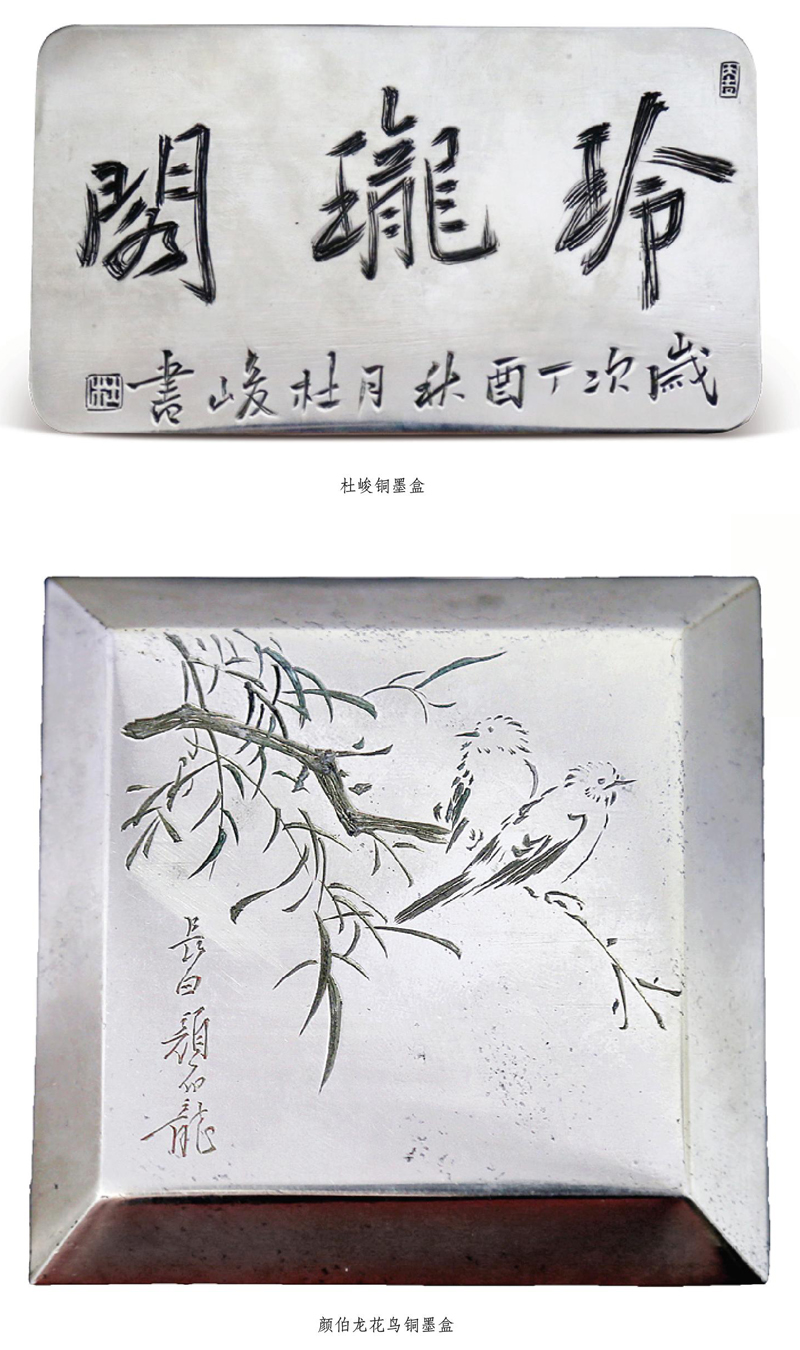 玲瓏閣
歲次丁酉秋月杜峻書
杜
杜峻铜墨盒
長白顏伯龍
颜伯龙花鸟铜墨盒